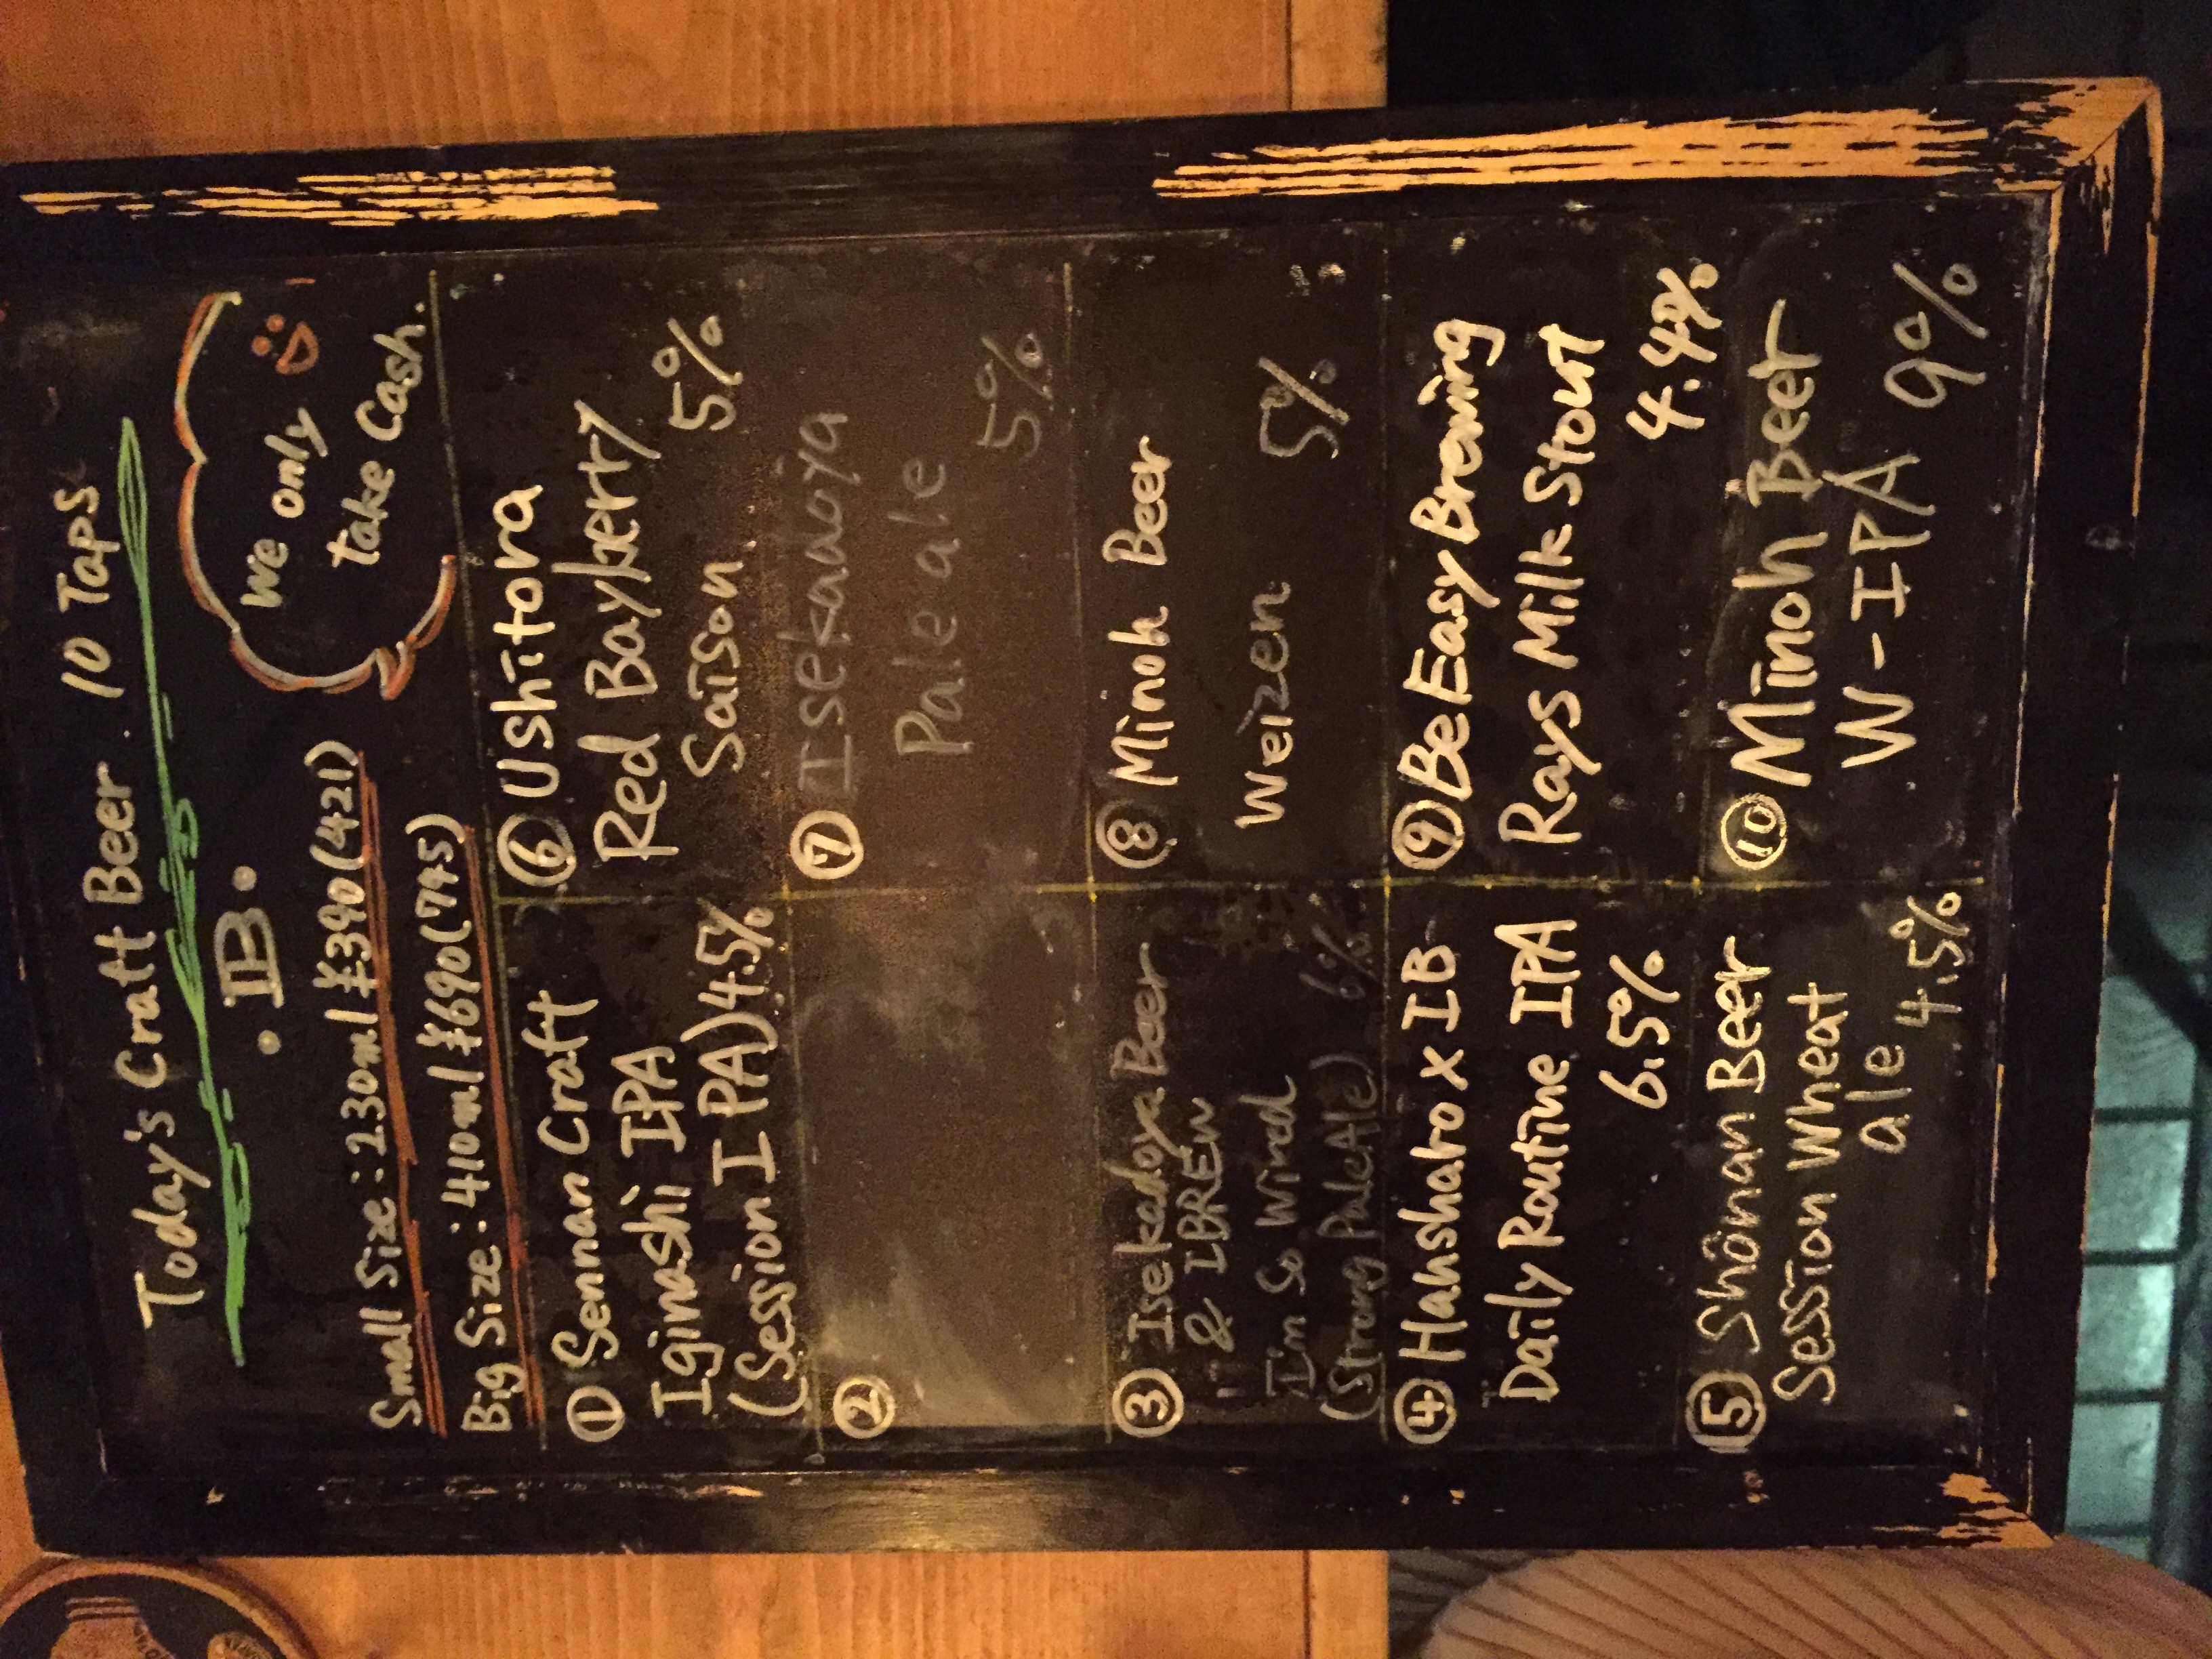 Today's Craft Beer 10 Taps
• IB •
We only
take Cash.
Small Size : 230ml ¥390 (421)
Big Size : 410ml ¥690 (745)
① Sennan Craft
Iginashi IPA
(Session IPA) 4.5%
②
③ Isekadoya Beer
& IBREW
I'm So. Wird
(Strong Pale Ale) 6%
④ Hahshahro x IB
Daily Routine IPA
6.5%
⑤ Shonan Beer
Session Wheat
ale 4.5%
⑥ Ushitora
Red Bayberry
Saison 5%
⑦ Isekadoya
Pale ale
5%
⑧ Minoh Beer
Weizen 5%
⑨ Be Easy Brewing
Rays Milk Stout
4.4%
⑩ Minoh Beer
W-IPA 9%